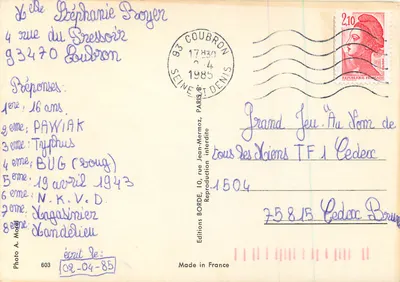 Mlle Stéphanie Boyer
4 rue du Pressoir
93470 Coubron
Réponses:
1ère; 16 ans
2ème; PAWIAK
3ème; Typhus
4ème; BUG (Boug)
5ème; 19 avril 1943
6ème; N.K.V.D.
7ème; Magasinier
8ème; Mandelieu
écrit le:
02-04-85
Photo A. 
603
Made in France
Editions BORDE, 10, rue Jean-Mermoz, PARIS-8e
Reproduction interdite
93 COUBRON
17H30
2-4
1985
SEINE-ST-DENIS
2,10
Grand Jeu "Au Nom de
tous les Miens TF1 Cedex
1504
75815 Cedex